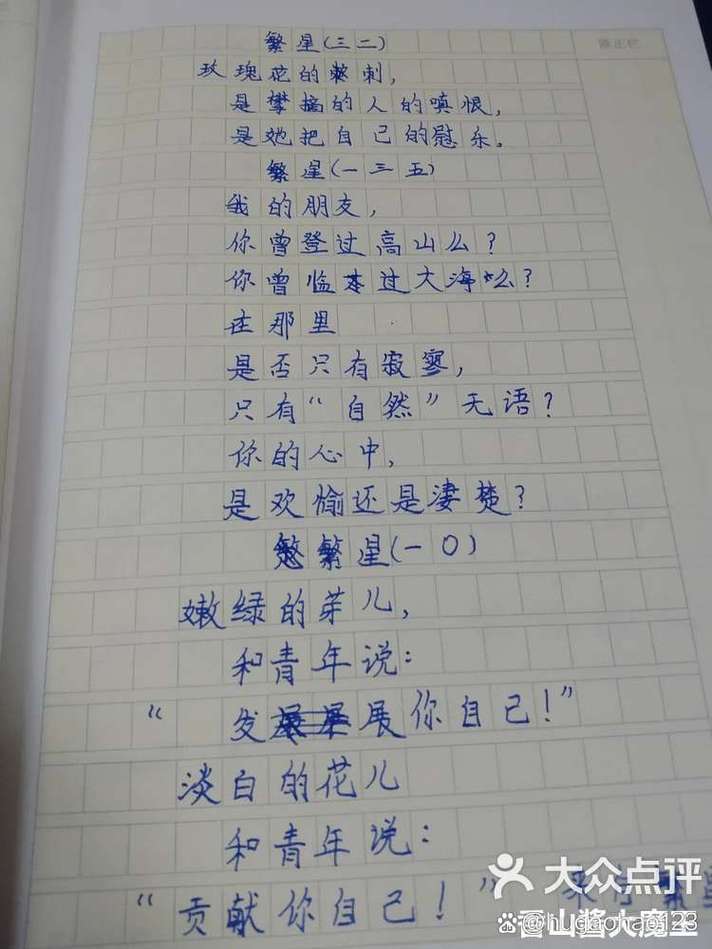 繁星(三二)
玫瑰花的刺,
是攀摘的人的嗔恨,
是她把自己的慰乐。
繁星(一三五)
我的朋友,
你曾登过高山么?
你曾临过大海么?
在那里
是否只有寂寥,
只有“自然”无语?
你的心中,
是欢愉还是凄楚?
繁星(一0)
嫩绿的芽儿,
和青年说:
“发展你自己!”
淡白的花儿
和青年说:
“贡献你自己!”
大众点评